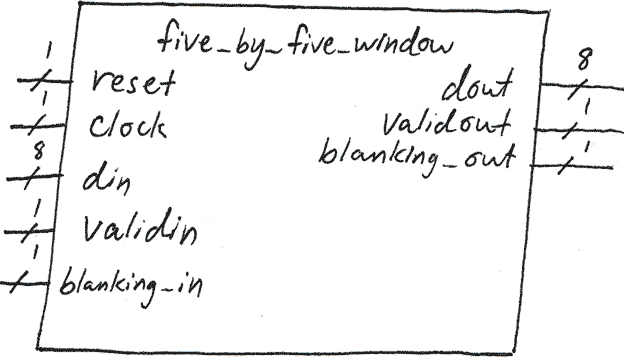 five_by_five_window
1
reset
1
clock
8
din
1
validin
1
blanking_in
8
dout
1
validout
1
blanking_out